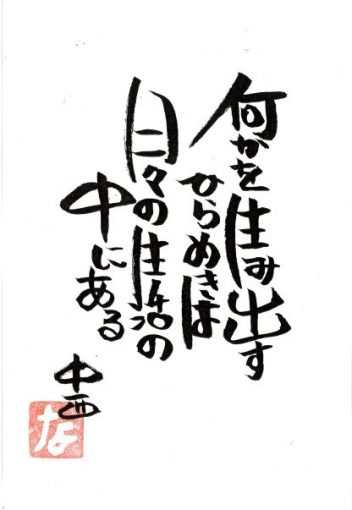 何かを生み出す
ひらめきは
日々の生活の
中にある
中西
な